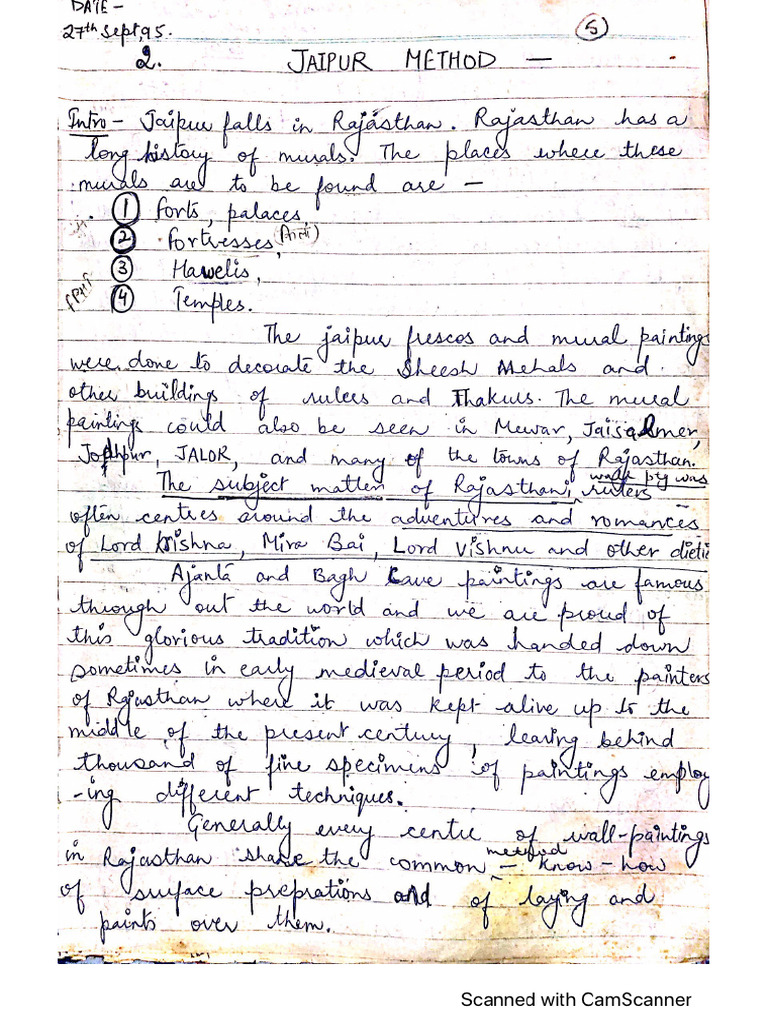 DATE -
27th Sept, 95.
5
2. JAIPUR METHOD —
Intro - Jaipur falls in Rajasthan. Rajasthan has a
long history of murals. The places where these
murals are to be found are —
1 forts, palaces,
2 fortresses, (किला)
3 Hawelis,
4 Temples.
The jaipur frescos and mural paintings
were done to decorate the Sheesh Mehals and
other buildings of rulers and Thakurs. The mural
paintings could also be seen in Mewar, Jaisalmer,
Jodhpur, JALOR, and many of the towns of Rajasthan.
wall ptg was
The subject matter of Rajasthani rulers
often centres around the adventures and romances
of Lord Krishna, Mira Bai, Lord Vishnu and other dieti
Ajanta and Bagh Cave paintings are famous
through out the world and we are proud of
this glorious tradition which was handed down
sometimes in early medieval period to the painters
of Rajasthan where it was kept alive up to the
middle of the present century, leaving behind
thousand of fine specimens of paintings employ
-ing different techniques.
Generally every centre of wall-paintings
in Rajasthan share the common method — know-how
of surface preprations and of laying and
paints over them.
Scanned with CamScanner